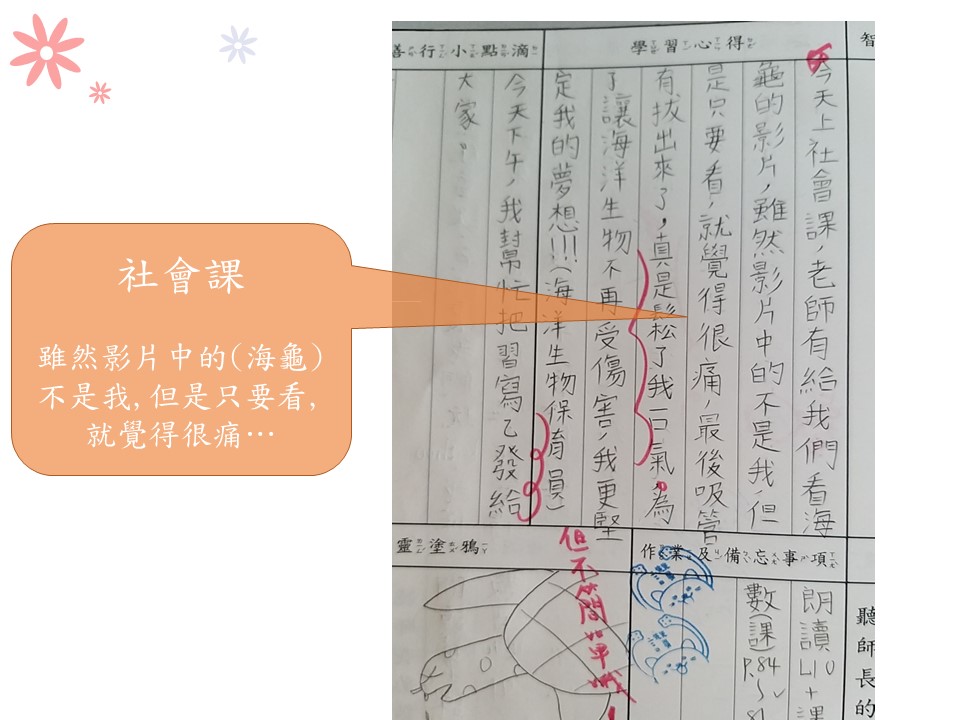 社會課
雖然影片中的(海龜)
不是我,但是只要看,
就覺得很痛…
智
學習心得
今天上社會課,老師有給我們看海
龜的影片,雖然影片中的不是我,但
是只要看,就覺得很痛,最後吸管
有拔出來了,真是鬆了我一口氣,為
了讓海洋生物不再受傷害,我更堅
定我的夢想!!!(海洋生物保育員)
善行小點滴
今天下午,我幫忙把習寫乙發給
大家。
作業及備忘事項
朗讀L10+課
數(課)P.84~
聽師長的
靈塗鴉
但不簡單哦!
讚
讚